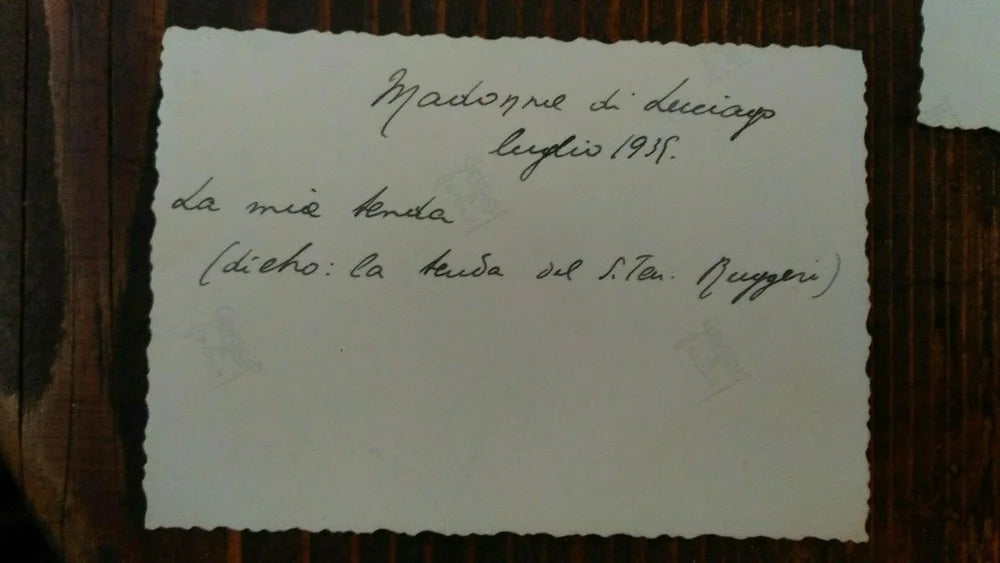 Madonna di Luciago
luglio 1935.
La mia tenda
(dietro: la tenda del S.Ten. Ruggeri)